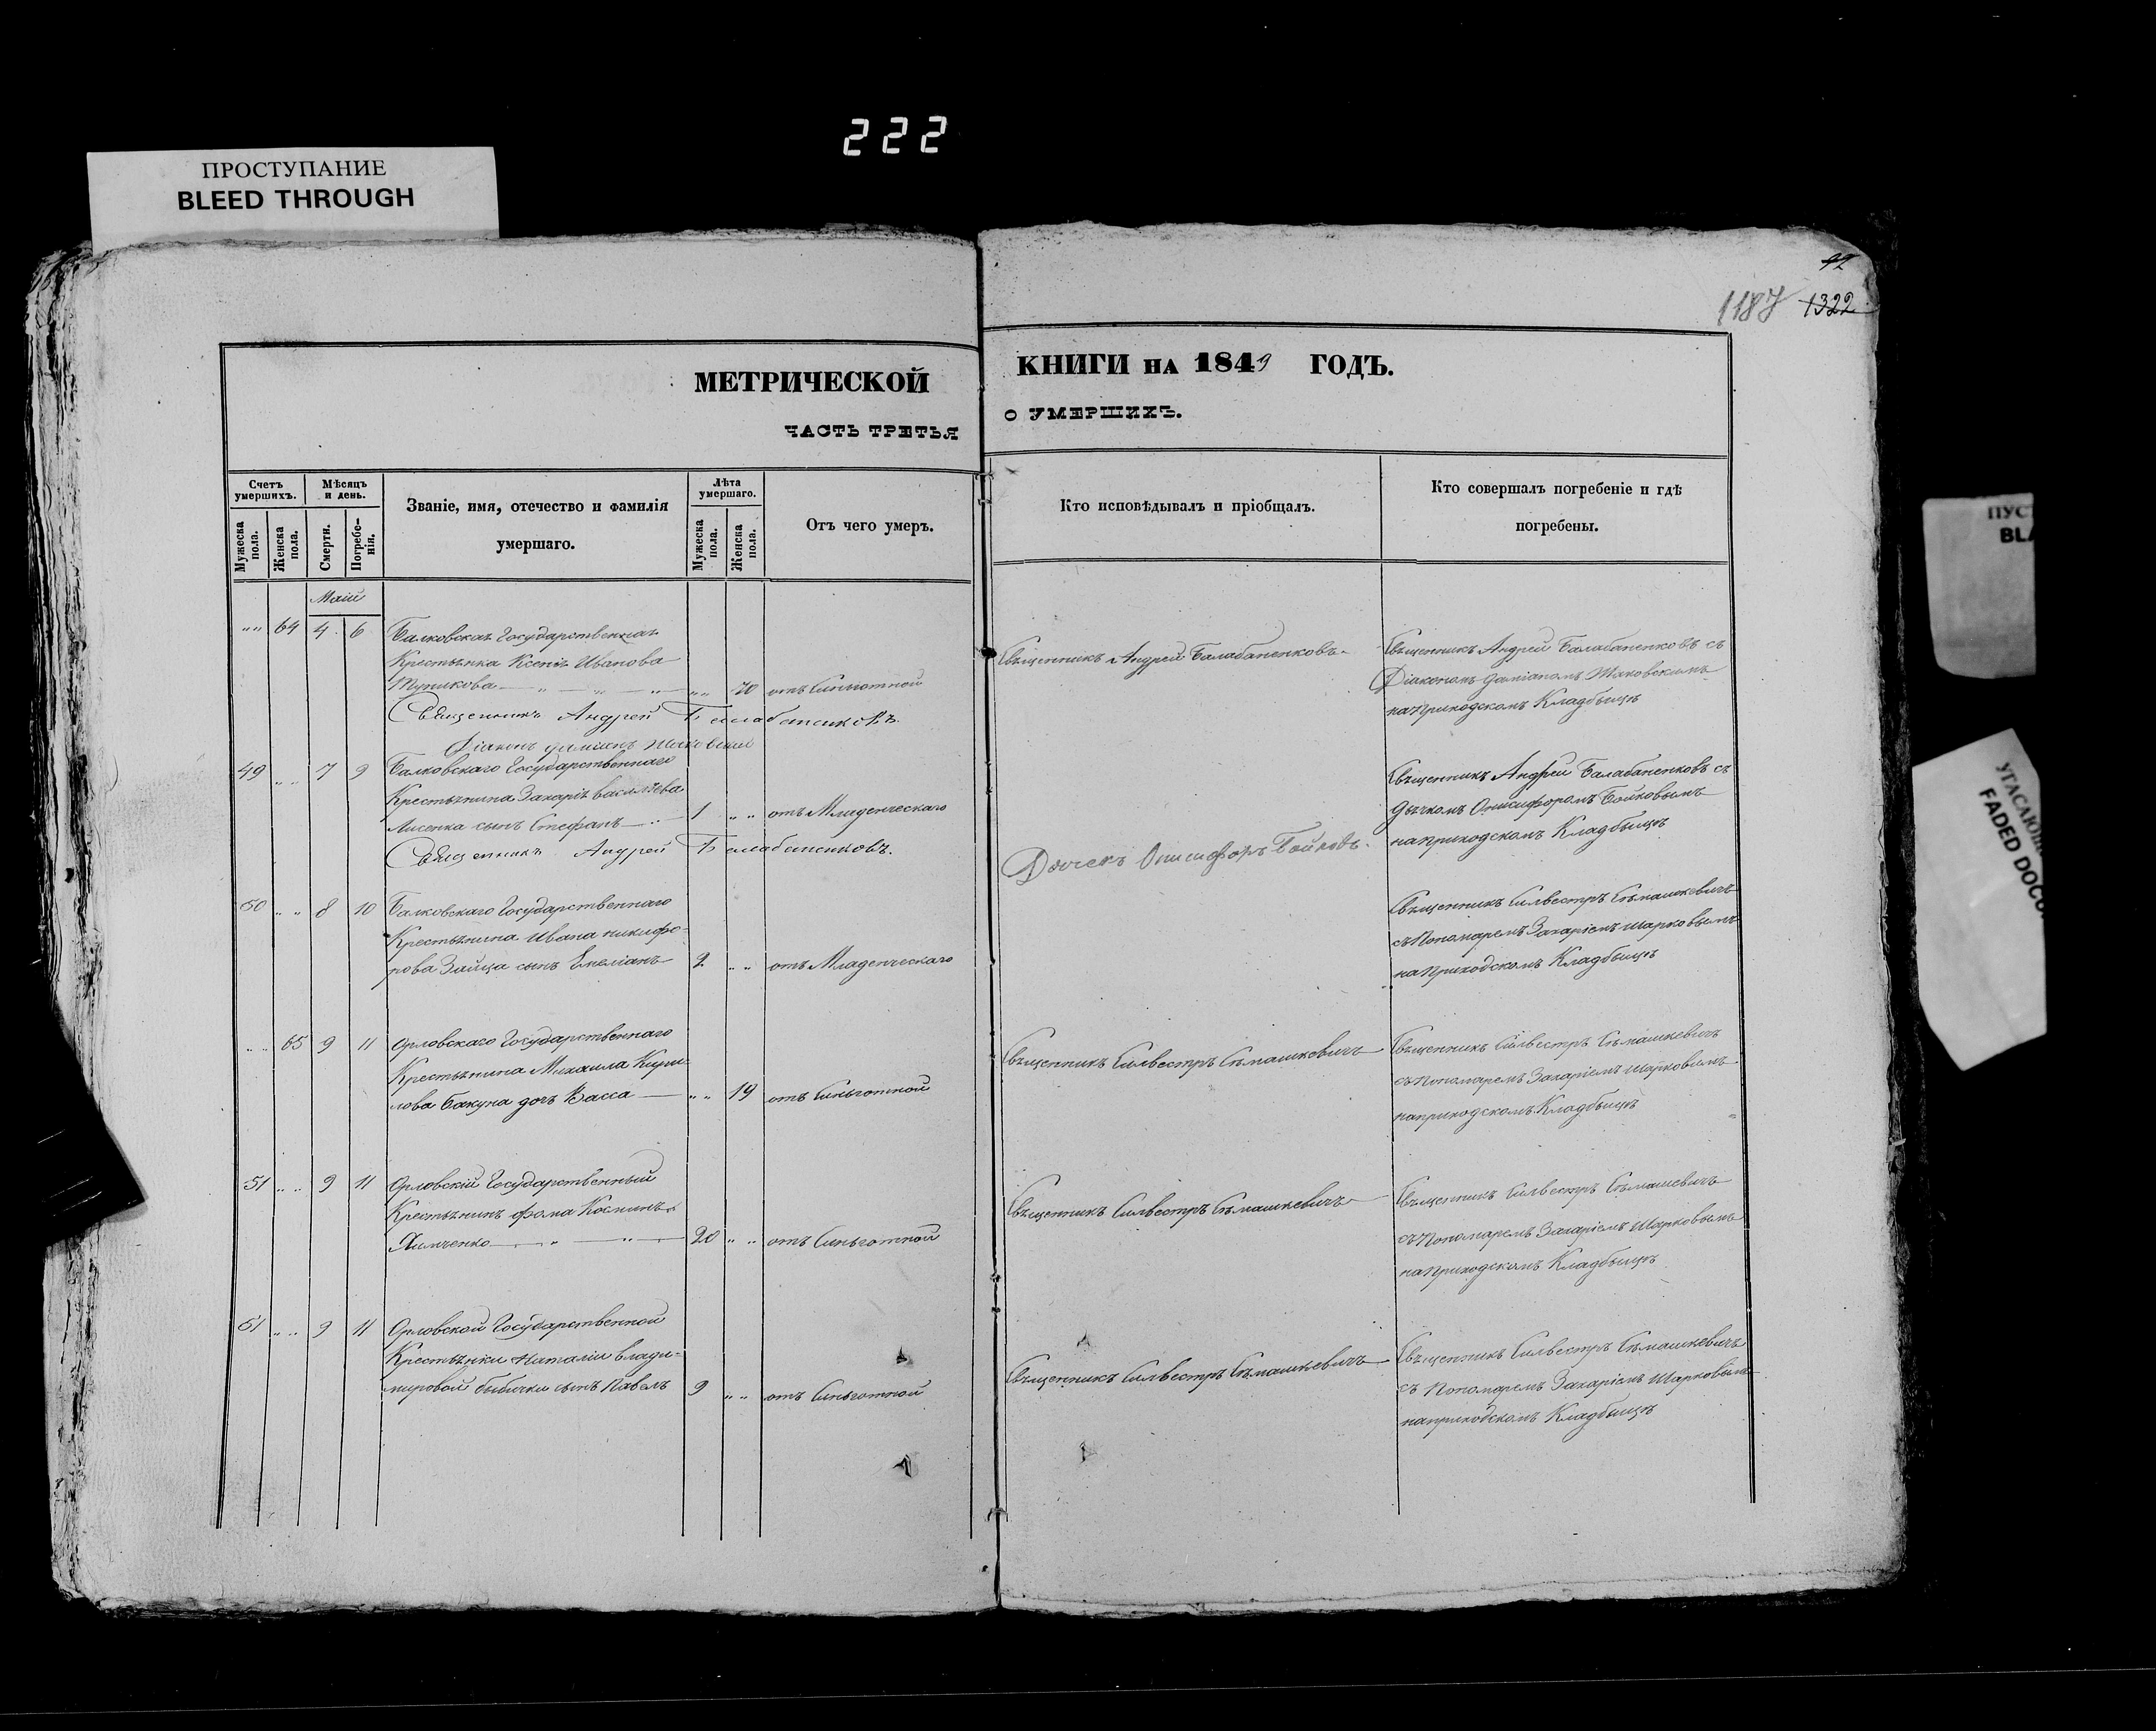 222
ПРОСТУПАНИЕ
BLEED THROUGH
92
1187 1322
МЕТРИЧЕСКОЙ
ЧАСТЬ ТРЕТЬЯ
КНИГИ НА 1849 ГОДЪ.
О УМЕРШИХЪ.
Счетъ умершихъ.
Мужеска пола.
Женска пола.
Мѣсяцъ и день.
Смерти.
Погребе-нія.
Званіе, имя, отечество и фамилія
умершаго.
Лѣта умершаго.
Мужеска пола.
Женска пола.
Отъ чего умеръ.
Кто исповѣдывалъ и пріобщалъ.
Кто совершалъ погребеніе и гдѣ
погребены.
Маій
"" 64 4 6 Балковская Государственная
Крестьянка Ксенія Иванова
"" 70
Священникъ Андрей Балабаненковъ
Священникъ Андрей Балабаненковъ съ
Діакономъ Даміаномъ
на приходскомъ Кладбыщѣ
Священникъ Андрей Балабаненковъ.
Діаконъ Даміанъ
49 "" 7 9 Балковскаго Государственнаго
Крестьянина Захарія Васильева
Лисенка сынъ Стефанъ 1 "" отъ Младенческаго
Священникъ Андрей Балабаненковъ съ
Дьячкомъ Онисифоромъ Бойковымъ
на приходскомъ Кладбыщѣ
Священникъ Андрей Балабаненковъ.
Дьячекъ Онисифоръ Бойковъ.
50 "" 8 10 Балковскаго Государственнаго
Крестьянина Ивана Никифо-
рова Зайца сынъ Емеліанъ 2 "" отъ Младенческаго
Священникъ Сильвестръ Сѣмашкевичъ
съ Пономаремъ Захаріемъ Шарковымъ
на приходскомъ Кладбыщѣ
"" 65 9 11 Орловскаго Государственнаго
Крестьянина Михаила Кири-
лова Бакуна дочь Васса "" 19
Священникъ Сильвестръ Сѣмашкевичъ
Священникъ Сильвестръ Сѣмашкевичъ
съ Пономаремъ Захаріемъ Шарковымъ
на приходскомъ Кладбыщѣ
51 "" 9 11 Орловскій Государственный
Крестьянинъ Фома Косминъ
Химченко 20 ""
Священникъ Сильвестръ Сѣмашкевичъ
Священникъ Сильвестръ Сѣмашевичъ
съ Пономаремъ Захаріемъ Шарковымъ
на приходскомъ Кладбыщѣ
51 "" 9 11 Орловской Государственной
Крестьянки Наталіи Влади-
мировой сынъ Павелъ 9 ""
Священникъ Сильвестръ Сѣмашкевичъ
Священникъ Сильвестръ Сѣмашкевичъ
съ Пономаремъ Захаріемъ Шарковымъ
на приходскомъ Кладбыщѣ
ПУС
BLA
УГАСАЮЩ
FADED DOCU